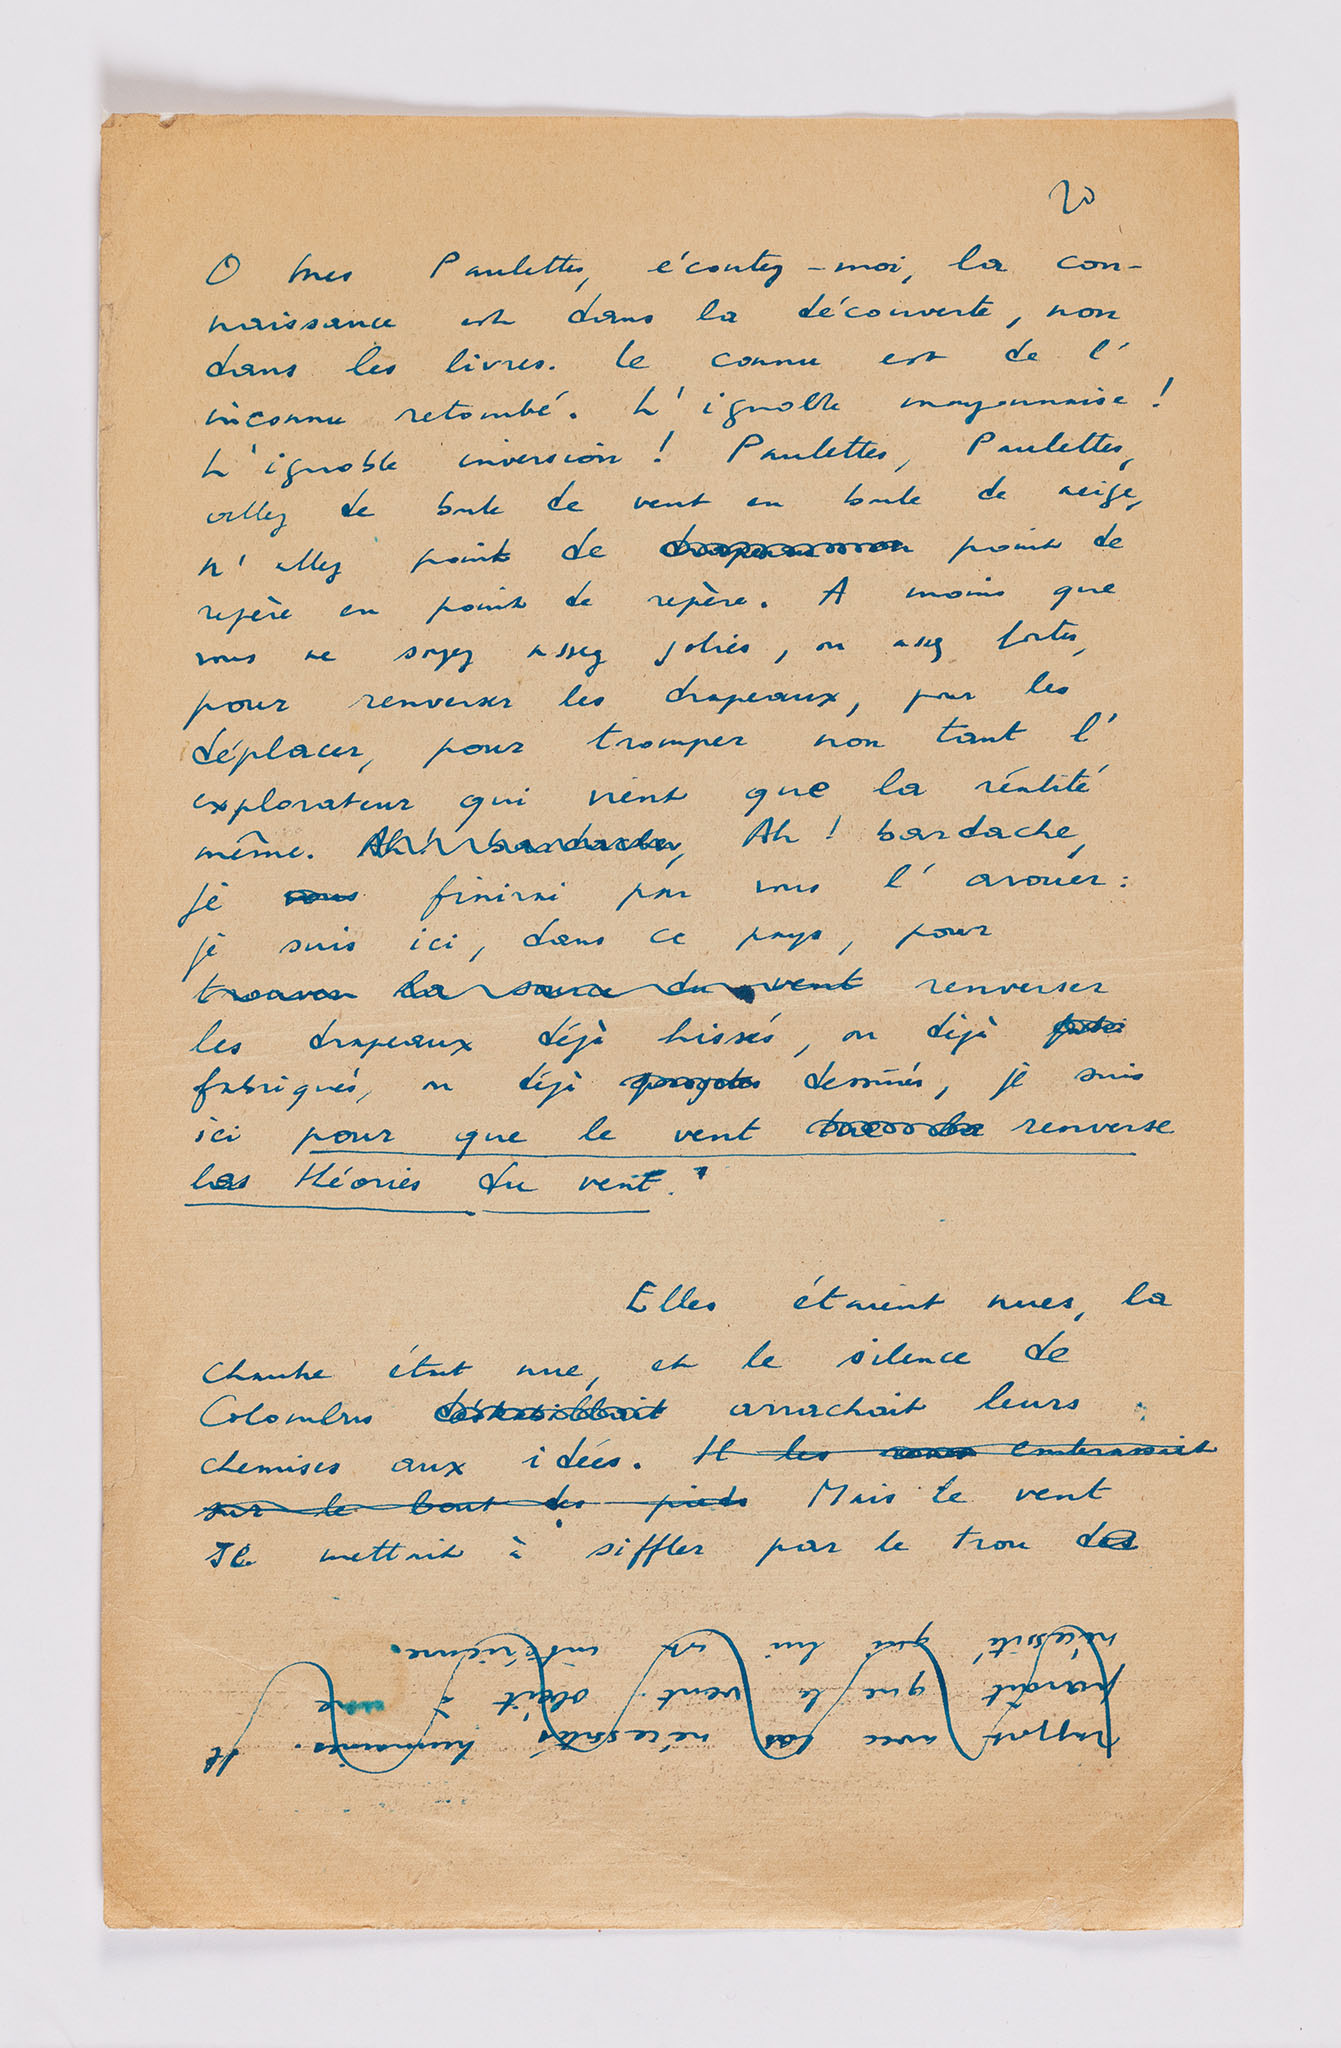 20
O mes Paulettes, écoutez-moi, la con-
naissance est dans la découverte, non
dans les livres. Le connu est de l'
inconnu retombé. L'ignoble mayonnaise !
L'ignoble inversion ! Paulettes, Paulettes,
allez de boule de vent en boule de neige,
n'allez point de point de
repère en point de repère. A moins que
vous ne soyez assez jolies, ou assez fortes,
pour renverser les drapeaux, pour les
déplacer, pour tromper non tant l'
explorateur qui vient que la réalité
même. Ah ! bardache, Ah ! bardache,
je vous finirai par vous l'avouer :
je suis ici, dans ce pays, pour
trouver la source du vent renverser
les drapeaux déjà hissés, ou déjà
fabriqués, ou déjà dessinés, je suis
ici pour que le vent renverse
les théories du vent."
Elles étaient nues, la
chambre était nue, et le silence de
Colombes déshabillait arrachait leurs
chemises aux idées. Il les embrassait
sur le bout des pieds Mais le vent
se mettait à siffler par le trou des
rapport avec les nécessités humaines. Il
paraît que le vent obéit à une
nécessité qui lui est intérieure.